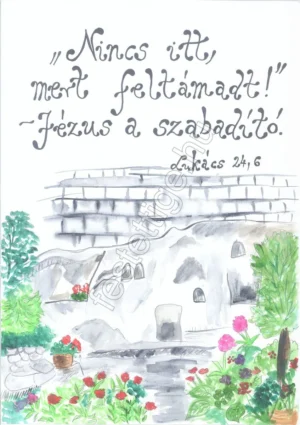 „Nincs itt,
mert feltámadt!"
~Jézus a szabadító.
Lukács 24,6
festettige.hu